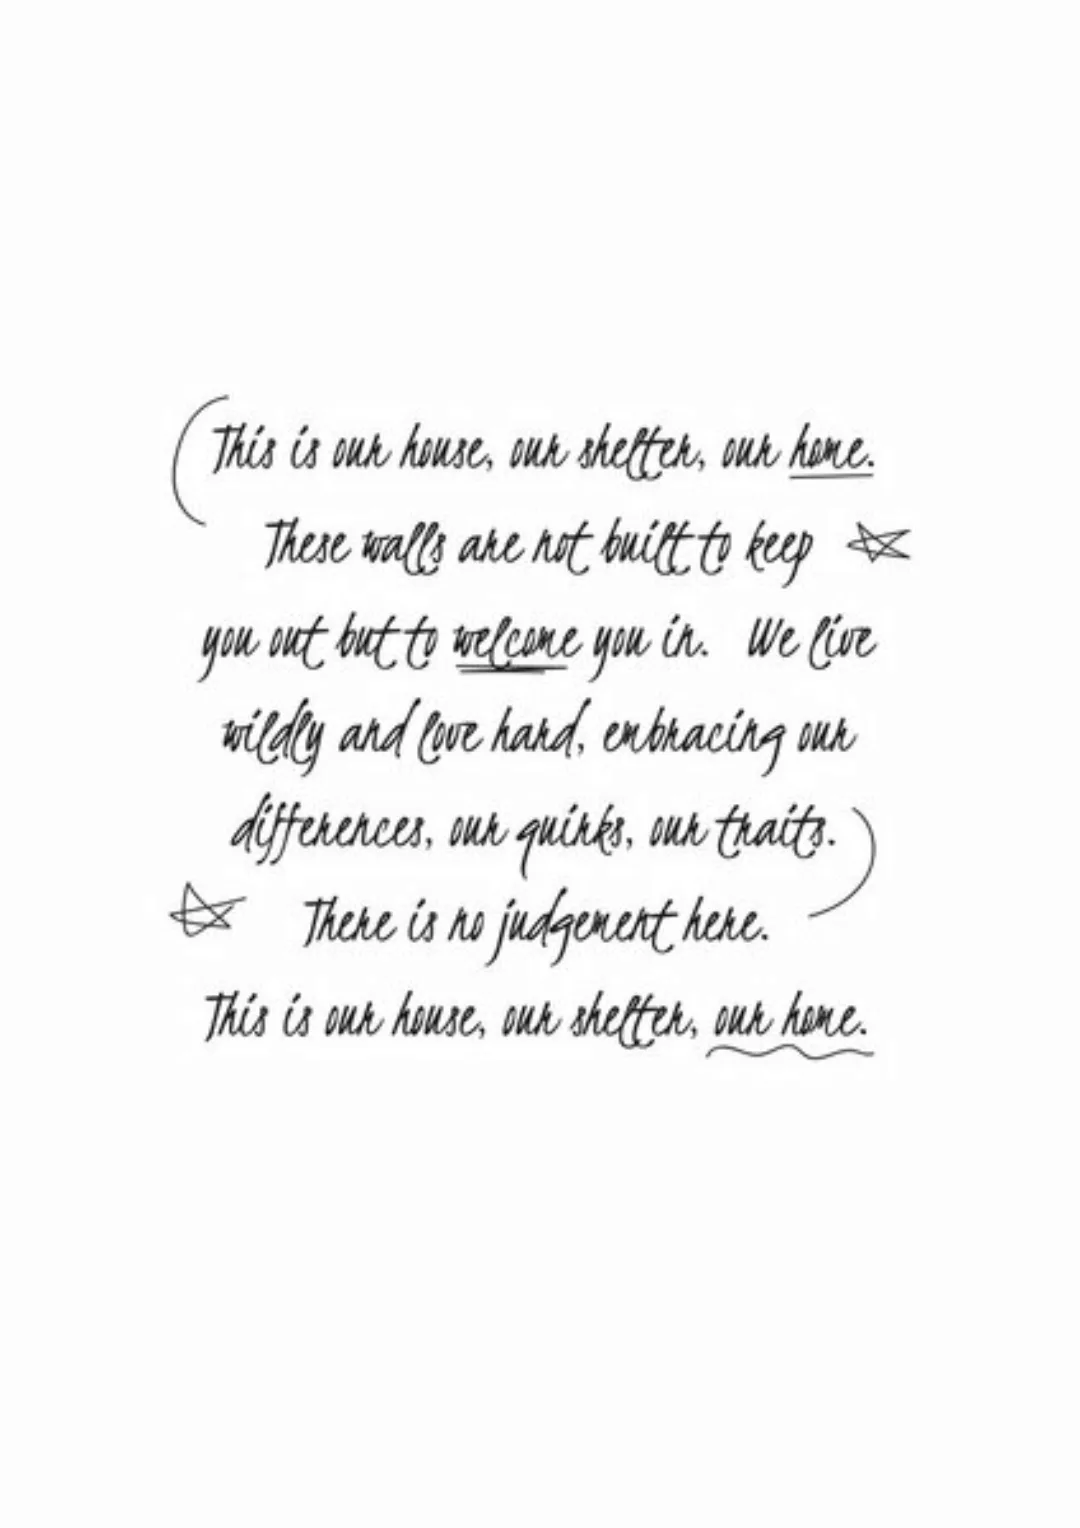 This is our house, our shelter, our home.
These walls are not built to keep
you out but to welcome you in. We live
wildly and love hard, embracing our
differences, our quirks, our traits.
There is no judgement here.
This is our house, our shelter, our home.